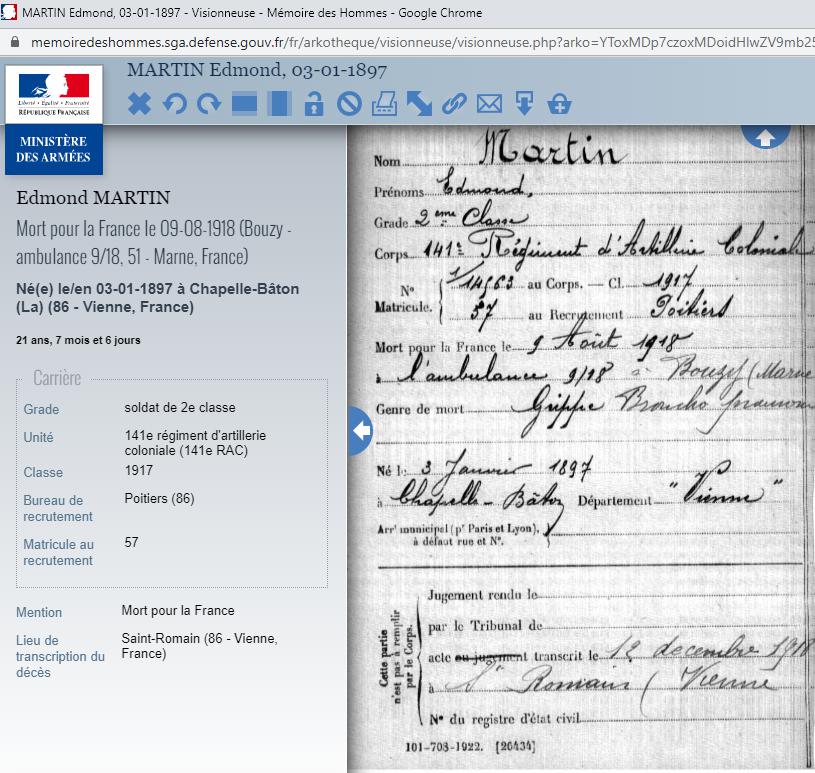 MARTIN Edmond, 03-01-1897 - Visionneuse - Mémoire des Hommes - Google Chrome
memoiredeshommes.sga.defense.gouv.fr/fr/arkotheque/visionneuse/visionneuse.php?arko=YToxMDp7czoxMDoidHlwZV9mb25
MARTIN Edmond, 03-01-1897
Liberté • Égalité • Fraternité
RÉPUBLIQUE FRANÇAISE
MINISTÈRE
DES ARMÉES
Edmond MARTIN
Mort pour la France le 09-08-1918 (Bouzy -
ambulance 9/18, 51 - Marne, France)
Né(e) le/en 03-01-1897 à Chapelle-Bâton
(La) (86 - Vienne, France)
21 ans, 7 mois et 6 jours
Carrière
Grade soldat de 2e classe
Unité 141e régiment d'artillerie
coloniale (141e RAC)
Classe 1917
Bureau de Poitiers (86)
recrutement
Matricule au 57
recrutement
Mention Mort pour la France
Lieu de Saint-Romain (86 - Vienne,
transcription du France)
décès
Nom Martin
Prénoms Edmond,
Grade 2ème Classe
Corps 141e Régiment d'Artillerie Coloniale
N° 1/14563 au Corps. — Cl. 1917
Matricule. 57 au Recrutement Poitiers
Mort pour la France le 9 Août 1918
à l'ambulance 9/18 à Bouzy (Marne
Genre de mort Grippe Broncho
Né le 3 Janvier 1897
à Chapelle-Bâton Département "Vienne"
Arrt municipal (pr Paris et Lyon),
à défaut rue et N°.
Cette partie
n'est pas à remplir
par le Corps.
Jugement rendu le
par le Tribunal de
acte ou jugement transcrit le 12 decembre 1918
à St Romain (Vienne
N° du registre d'état civil
101-708-1922. [26434]